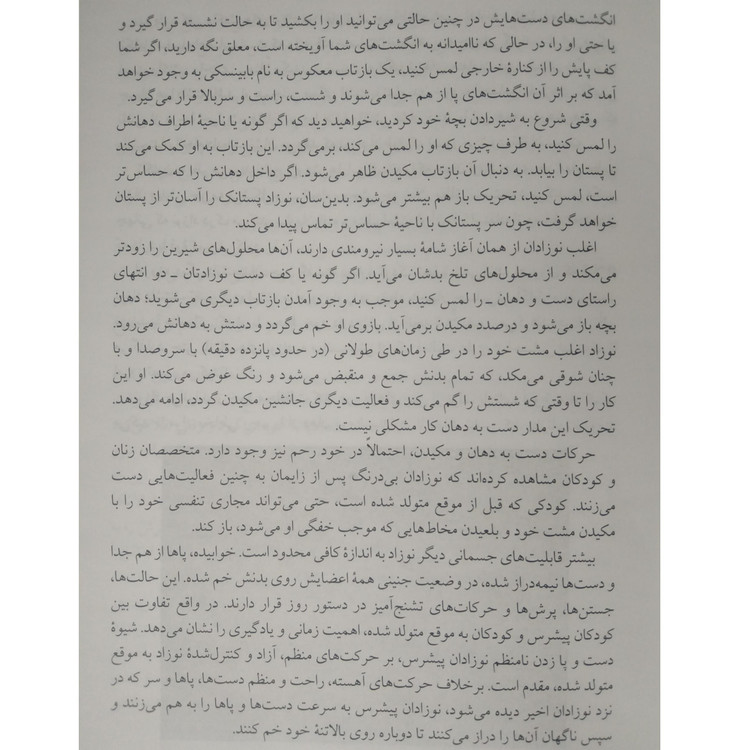 انگشت‌های دست‌هایش در چنین حالتی می‌توانید او را بکشید تا به حالت نشسته قرار گیرد و
یا حتی او را، در حالی که ناامیدانه به انگشت‌های شما آویخته است، معلق نگه دارید، اگر شما
کف پایش را از کنارهٔ خارجی لمس کنید، یک بازتاب معکوس به نام بابینسکی به وجود خواهد
آمد که بر اثر آن انگشت‌های پا از هم جدا می‌شوند و شست، راست و سربالا قرار می‌گیرد.
وقتی شروع به شیردادن بچهٔ خود کردید، خواهید دید که اگر گونه یا ناحیهٔ اطراف دهانش
را لمس کنید، به طرف چیزی که او را لمس می‌کند، برمی‌گردد. این بازتاب به او کمک می‌کند
تا پستان را بیابد. به دنبال آن بازتاب مکیدن ظاهر می‌شود. اگر داخل دهانش را که حساس‌تر
است، لمس کنید، تحریک باز هم بیشتر می‌شود. بدین‌سان، نوزاد پستانک را آسان‌تر از پستان
خواهد گرفت، چون سر پستانک با ناحیهٔ حساس‌تر تماس پیدا می‌کند.
اغلب نوزادان از همان آغاز شامهٔ بسیار نیرومندی دارند، آن‌ها محلول‌های شیرین را زودتر
می‌مکند و از محلول‌های تلخ بدشان می‌آید. اگر گونه یا کف دست نوزادتان ــ دو انتهای
راستای دست و دهان ــ را لمس کنید، موجب به وجود آمدن بازتاب دیگری می‌شوید؛ دهان
بچه باز می‌شود و درصدد مکیدن برمی‌آید. بازوی او خم می‌گردد و دستش به دهانش می‌رود.
نوزاد اغلب مشت خود را در طی زمان‌های طولانی (در حدود پانزده دقیقه) با سروصدا و با
چنان شوقی می‌مکد، که تمام بدنش جمع و منقبض می‌شود و رنگ عوض می‌کند. او این
کار را تا وقتی که شستش را گم می‌کند و فعالیت دیگری جانشین مکیدن گردد، ادامه می‌دهد.
تحریک این مدار دست به دهان کار مشکلی نیست.
حرکات دست به دهان و مکیدن، احتمالاً در خود رحم نیز وجود دارد. متخصصان زنان
و کودکان مشاهده کرده‌اند که نوزادان بی‌درنگ پس از زایمان به چنین فعالیت‌هایی دست
می‌زنند. کودکی که قبل از موقع متولد شده است، حتی می‌تواند مجاری تنفسی خود را با
مکیدن مشت خود و بلعیدن مخاط‌هایی که موجب خفگی او می‌شود، باز کند.
بیشتر قابلیت‌های جسمانی دیگر نوزاد به اندازهٔ کافی محدود است. خوابیده، پاها از هم جدا
و دست‌ها نیمه‌دراز شده، در وضعیت جنینی همهٔ اعضایش روی بدنش خم شده. این حالت‌ها،
جستن‌ها، پرش‌ها و حرکات‌های تشنج‌آمیز در دستور روز قرار دارند. در واقع تفاوت بین
کودکان پیشرس و کودکان به موقع متولد شده، اهمیت زمانی و یادگیری را نشان می‌دهد. شیوهٔ
دست و پا زدن نامنظم نوزادان پیشرس، بر حرکت‌های منظم، آزاد و کنترل‌شدهٔ نوزاد به موقع
متولد شده، مقدم است. برخلاف حرکت‌های آهسته، راحت و منظم دست‌ها، پاها و سر که در
نزد نوزادان اخیر دیده می‌شود، نوزادان پیشرس به سرعت دست‌ها و پاها را به هم می‌زنند و
سپس ناگهان آن‌ها را دراز می‌کنند تا دوباره روی بالاتنهٔ خود خم کنند.